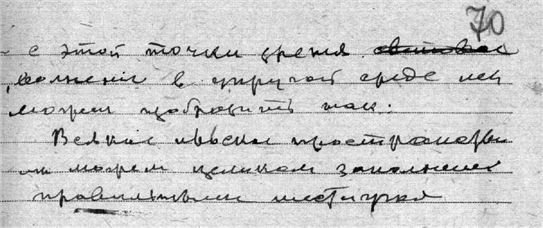 70
с этой точки зрения световое
волнение в упругой среде мы
можем изобразить так:
Всякое плоское пространство
мы можем целиком заполнить
правильными шестиугол